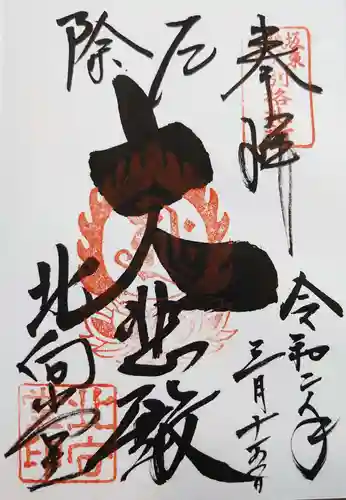 奉拝
令和二年
三月十五日
厄除
大悲殿
北向堂
坂東